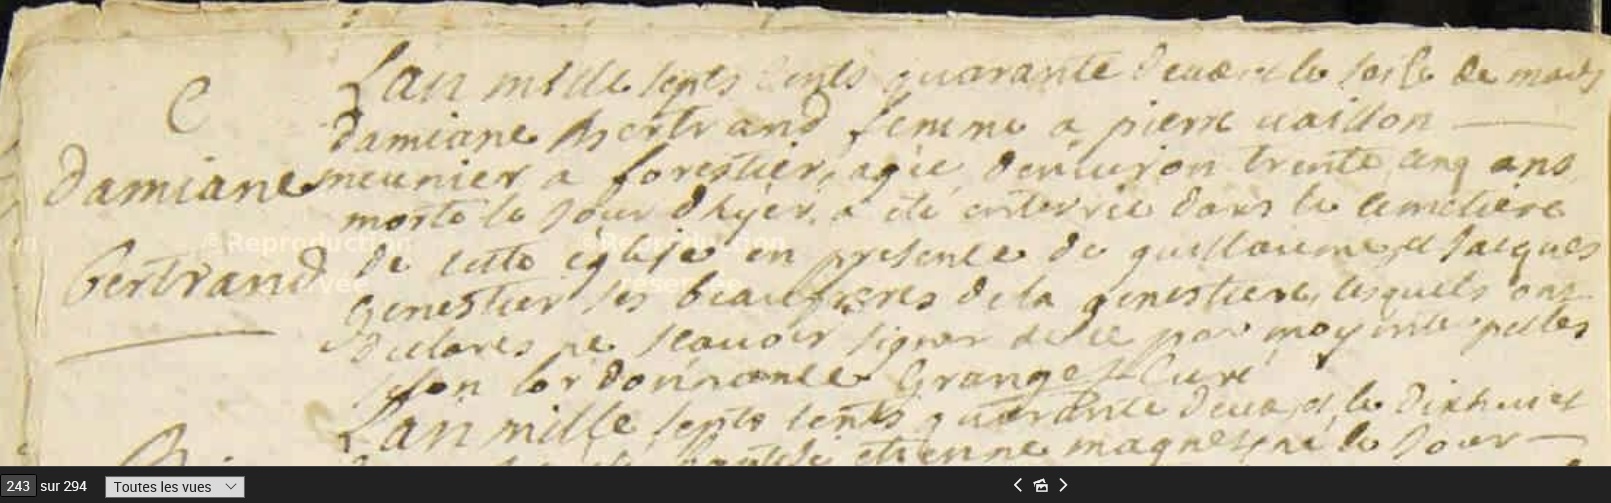 C
Damiane
Bertrand
L'an mille septs cents quarante deux et le seize de mars
damiane Bertrand femme a pierre vaillon
meunier a forestier, agée denviron trente cinq ans
morte le jour d'hyer, a été enterrée dans le cemetière
de cette église en presence de guillaume et Jacques
Genestier ses beaufreres de la genestiere, lesquels ont
declarés ne scavoir signer de ce par moy interpellés
selon l'ordonnance Granges Curé
L'an mille septs cents quarante deux et le dixhuit
baptisé etienne magne né le jour
©Reproduction
réservée
©Reproduction
réservée
243 sur 294 Toutes les vues